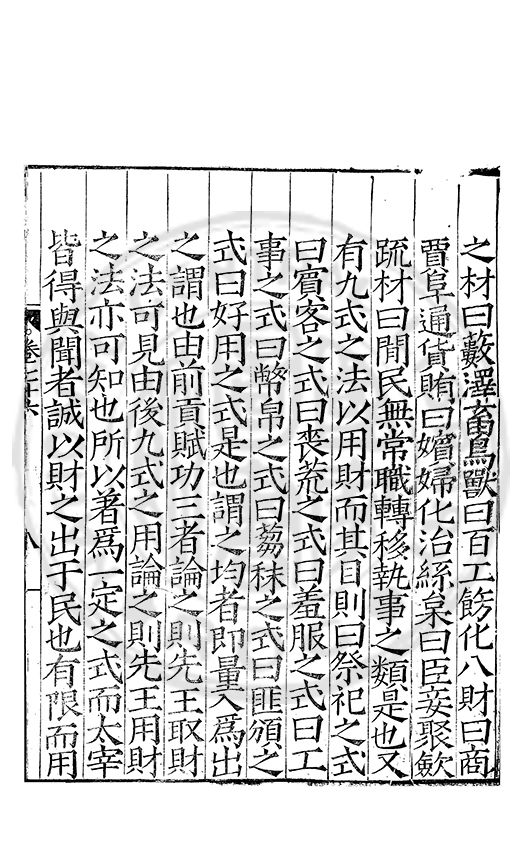 之材曰藪澤畜鳥獸曰百工飭化八財曰商
賈阜通貨賄曰嬪婦化治絲枲曰臣妾聚斂
疏材曰閒民無常職轉移執事之類是也又
有九式之法以用財而其目則曰祭祀之式
曰賓客之式曰喪荒之式曰羞服之式曰工
事之式曰幣帛之式曰芻秣之式曰匪頒之
式曰好用之式是也謂之均者即量入爲出
之謂也由前貢賦功三者論之則先王取財
之法可見由後九式之用論之則先王用財
之法亦可知也所以著爲一定之式而太宰
皆得與聞者誠以財之出于民也有限而用
卷二十六
八